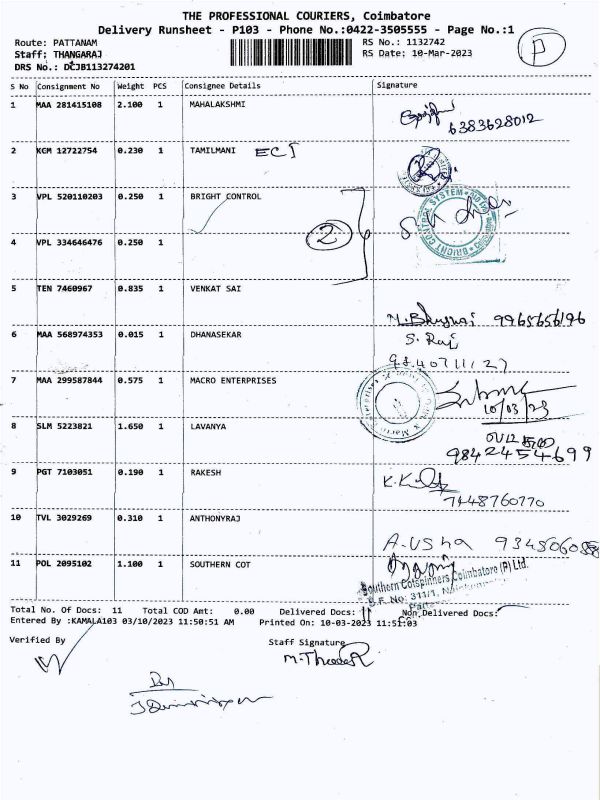 THE PROFESSIONAL COURIERS, Coimbatore
Delivery Runsheet - P103 - Phone No.:0422-3505555 - Page No.:1
Route: PATTANAM RS No.: 1132742
Staff: THANGARAJ RS Date: 10-Mar-2023
DRS No.: DCJB113274201
P
S No Consignment No Weight PCS Consignee Details Signature
1 MAA 281415108 2.100 1 MAHALAKSHMI
6383628012
2 KGM 12722754 0.230 1 TAMILMANI ECI
3 VPL 520110203 0.250 1 BRIGHT CONTROL
BRIGHT CONTROL SYSTEM
2
4 VPL 334646476 0.250 1
5 TEN 7460967 0.835 1 VENKAT SAI
9965656196
6 MAA 568974353 0.015 1 DHANASEKAR S. Raj
9840711127
7 MAA 299587844 0.575 1 MACRO ENTERPRISES
10/03/23
8 SLM 5223821 1.650 1 LAVANYA
9842454699
9 PGT 7103051 0.190 1 RAKESH
7448760770
10 TVL 3029269 0.310 1 ANTHONYRAJ
A. Usha
11 POL 2095102 1.100 1 SOUTHERN COT
Southern Cotspinners Coimbatore (P) Ltd.
S.F. No. 311/1,
Total No. Of Docs: 11 Total COD Amt: 0.00 Delivered Docs: 11 Non Delivered Docs:
Entered By :KAMALA103 03/10/2023 11:50:51 AM Printed On: 10-03-2023 11:51:03
Verified By Staff Signature